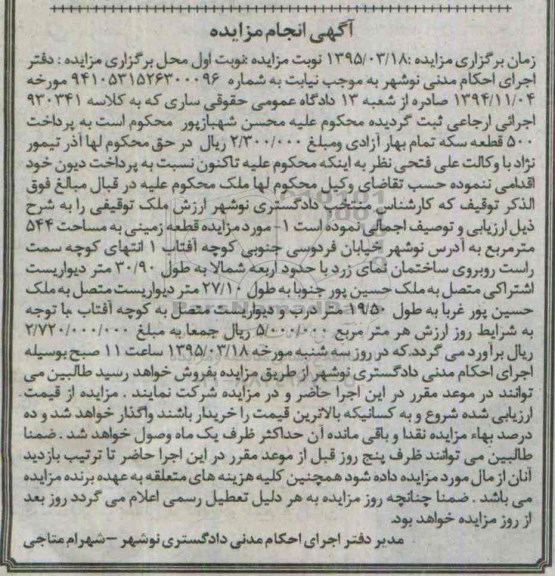 آگهی انجام مزایده
زمان برگزاری مزایده :۱۳۹۵/۰۳/۱۸ نوبت مزایده :نوبت اول محل برگزاری مزایده : دفتر
اجرای احکام مدنی نوشهر به موجب نیابت به شماره ۹۴۱۰۵۳۱۵۲۶۳۰۰۰۹۶ مورخه
۱۳۹۴/۱۱/۰۴ صادره از شعبه ۱۳ دادگاه عمومی حقوقی ساری که به کلاسه ۹۳۰۳۴۱
اجرائی ارجاعی ثبت گردیده محکوم علیه محسن شهبازپور محکوم است به پرداخت
۵۰۰ قطعه سکه تمام بهار آزادی ومبلغ ۲/۳۰۰/۰۰۰ ریال در حق محکوم لها آذر تیمور
نژاد با وکالت علی فتحی نظر به اینکه محکوم علیه تاکنون نسبت به پرداخت دیون خود
اقدامی ننموده حسب تقاضای وکیل محکوم لها ملک محکوم علیه در قبال مبالغ فوق
الذکر توقیف که کارشناس منتخب دادگستری نوشهر ارزش ملک توقیفی را به شرح
ذیل ارزیابی و توصیف اجمالی نموده است ۱- مورد مزایده قطعه زمینی به مساحت ۵۴۴
مترمربع به آدرس نوشهر خیابان فردوسی جنوبی کوچه آفتاب ۱ انتهای کوچه سمت
راست روبروی ساختمان نمای زرد با حدود اربعه شمالا به طول ۳۰/۹۰ متر دیواریست
اشتراکی متصل به ملک حسین پور جنوبا به طول ۲۷/۱۰ متر دیواریست متصل به ملک
حسین پور غربا به طول ۱۹/۵۰ متر درب و دیواریست متصل به کوچه آفتاب .با توجه
به شرایط روز ارزش هر متر مربع ۵/۰۰۰/۰۰۰ ریال جمعا به مبلغ ۲/۷۲۰/۰۰۰/۰۰۰
ریال برآورد می گردد.که در روز سه شنبه مورخه ۱۳۹۵/۰۳/۱۸ ساعت ۱۱ صبح بوسیله
اجرای احکام مدنی دادگستری نوشهر از طریق مزایده بفروش خواهد رسید طالبین می
توانند در موعد مقرر در این اجرا حاضر و در مزایده شرکت نمایند . مزایده از قیمت
ارزیابی شده شروع و به کسانیکه بالاترین قیمت را خریدار باشند واگذار خواهد شد و ده
درصد بهاء مزایده نقدا و باقی مانده آن حداکثر ظرف یک ماه وصول خواهد شد . ضمنا
طالبین می توانند ظرف پنج روز قبل از موعد مقرر در این اجرا حاضر تا ترتیب بازدید
آنان از مال مورد مزایده داده شود همچنین کلیه هزینه های متعلقه به عهده برنده مزایده
می باشد . ضمنا چنانچه روز مزایده به هر دلیل تعطیل رسمی اعلام می گردد روز بعد
از روز مزایده خواهد بود.
مدیر دفتر اجرای احکام مدنی دادگستری نوشهر –شهرام متاجی